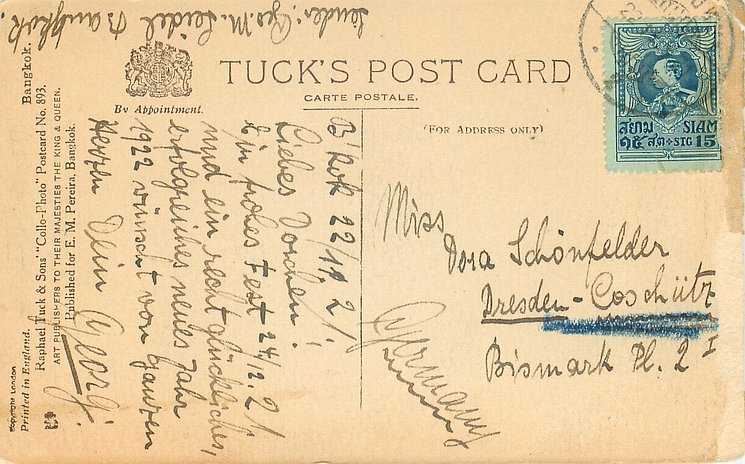 Sender: Geo. M. Seidel Bangkok.
By Appointment.
TUCK'S POST CARD
CARTE POSTALE.
(FOR ADDRESS ONLY)
สยาม SIAM
๑๕ สต STG 15
B'kok 22/11 21.
Liebes Dorchen!
Ein frohes Fest 24/12.21
und ein recht glückliches,
erfolgreiches neues Jahr
1922 wünscht von ganzen
Herzen Dein Georg.
Miss
Dora Schönfelder
Dresden-Coschütz
Bismark Pl. 2 I
Germany
Bangkok.
Raphael Tuck & Sons' "Collo-Photo" Postcard No. 893.
ART PUBLISHERS TO THEIR MAJESTIES THE KING & QUEEN.
Published for E. M. Pereira, Bangkok.
Copyright London
Printed in England.